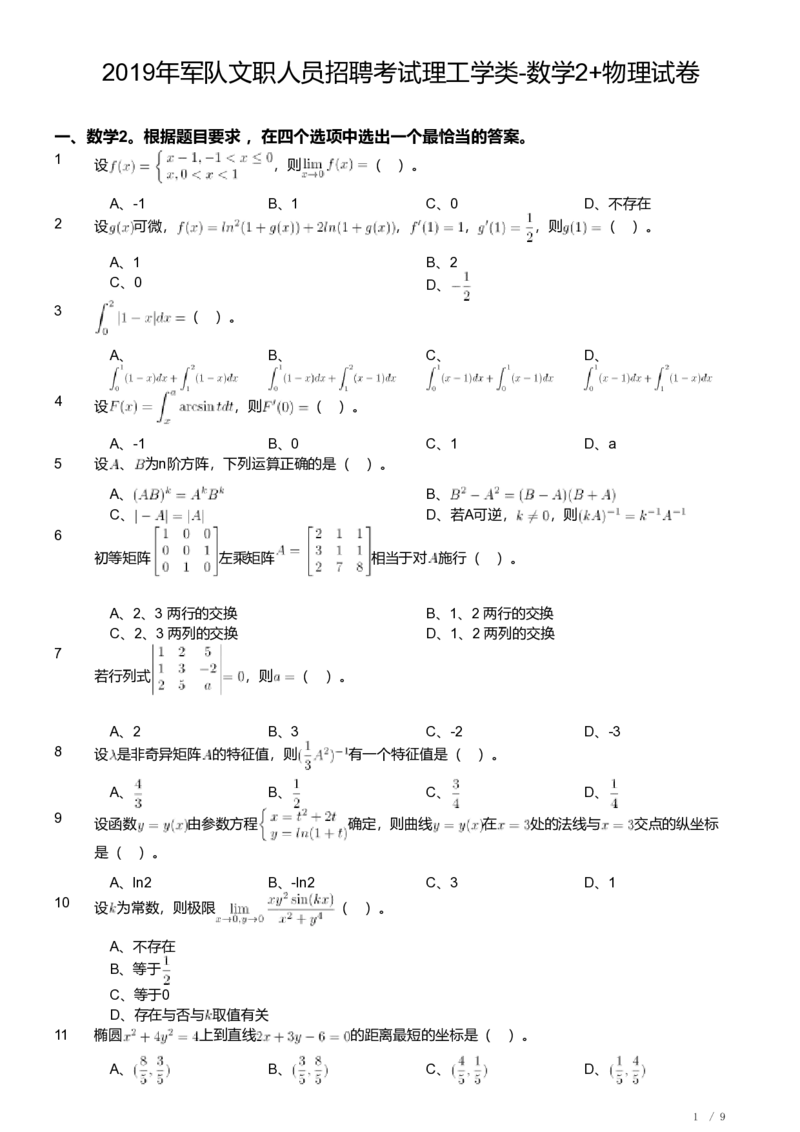 2019年军队文职人员招聘考试理工学类-数学2+物理试卷
一、数学2。根据题目要求，在四个选项中选出一个最恰当的答案。
1 设f(x) = { x − 1, −1 < x ≤ 0 ; x, 0 < x < 1 ，则lim_{x→0} f(x) =（ ）。
A、-1 B、1 C、0 D、不存在
2 设g(x)可微，f(x) = ln²(1 + g(x)) + 2ln(1 + g(x))，f′(1) = 1，g′(1) = 1/2，则g(1) =（ ）。
A、1 B、2
C、0 D、−1/2
3 ∫_0^2 |1 − x|dx =（ ）。
A、 B、 C、 D、
∫_0^1 (1 − x)dx + ∫_1^2 (1 − x)dx ∫_0^1 (1 − x)dx + ∫_1^2 (x − 1)dx ∫_0^1 (x − 1)dx + ∫_0^1 (x − 1)dx ∫_0^1 (1 − x)dx + ∫_1^2 (1 − x)dx
4 设F(x) = ∫_x^a arcsin tdt，则F′(0) =（ ）。
A、-1 B、0 C、1 D、a
5 设A、B为n阶方阵，下列运算正确的是（ ）。
A、(AB)^k = A^k B^k B、B² − A² = (B − A)(B + A)
C、| − A| = |A| D、若A可逆，k ≠ 0，则(kA)^{−1} = k^{−1}A^{−1}
6 初等矩阵 [1 0 0; 0 0 1; 0 1 0] 左乘矩阵 A = [2 1 1; 3 1 1; 2 7 8] 相当于对A施行（ ）。
A、2、3 两行的交换 B、1、2 两行的交换
C、2、3 两列的交换 D、1、2 两列的交换
7 若行列式 |1 2 5; 1 3 −2; 2 5 a| = 0，则a =（ ）。
A、2 B、3 C、-2 D、-3
8 设λ是非奇异矩阵A的特征值，则(1/3 A²)^{−1}有一个特征值是（ ）。
A、4/3 B、1/2 C、3/4 D、1/4
9 设函数y = y(x)由参数方程{ x = t² + 2t ; y = ln(1 + t) 确定，则曲线y = y(x)在x = 3处的法线与x = 3交点的纵坐标
是（ ）。
A、ln2 B、-ln2 C、3 D、1
10 设k为常数，则极限 lim_{x→0,y→0} xy² sin(kx)/(x² + y⁴)（ ）。
A、不存在
B、等于1/2
C、等于0
D、存在与否与k取值有关
11 椭圆x² + 4y² = 4上到直线2x + 3y − 6 = 0的距离最短的坐标是（ ）。
A、(8/5, 3/5) B、(3/5, 8/5) C、(4/5, 1/5) D、(1/5, 4/5)
1 / 9